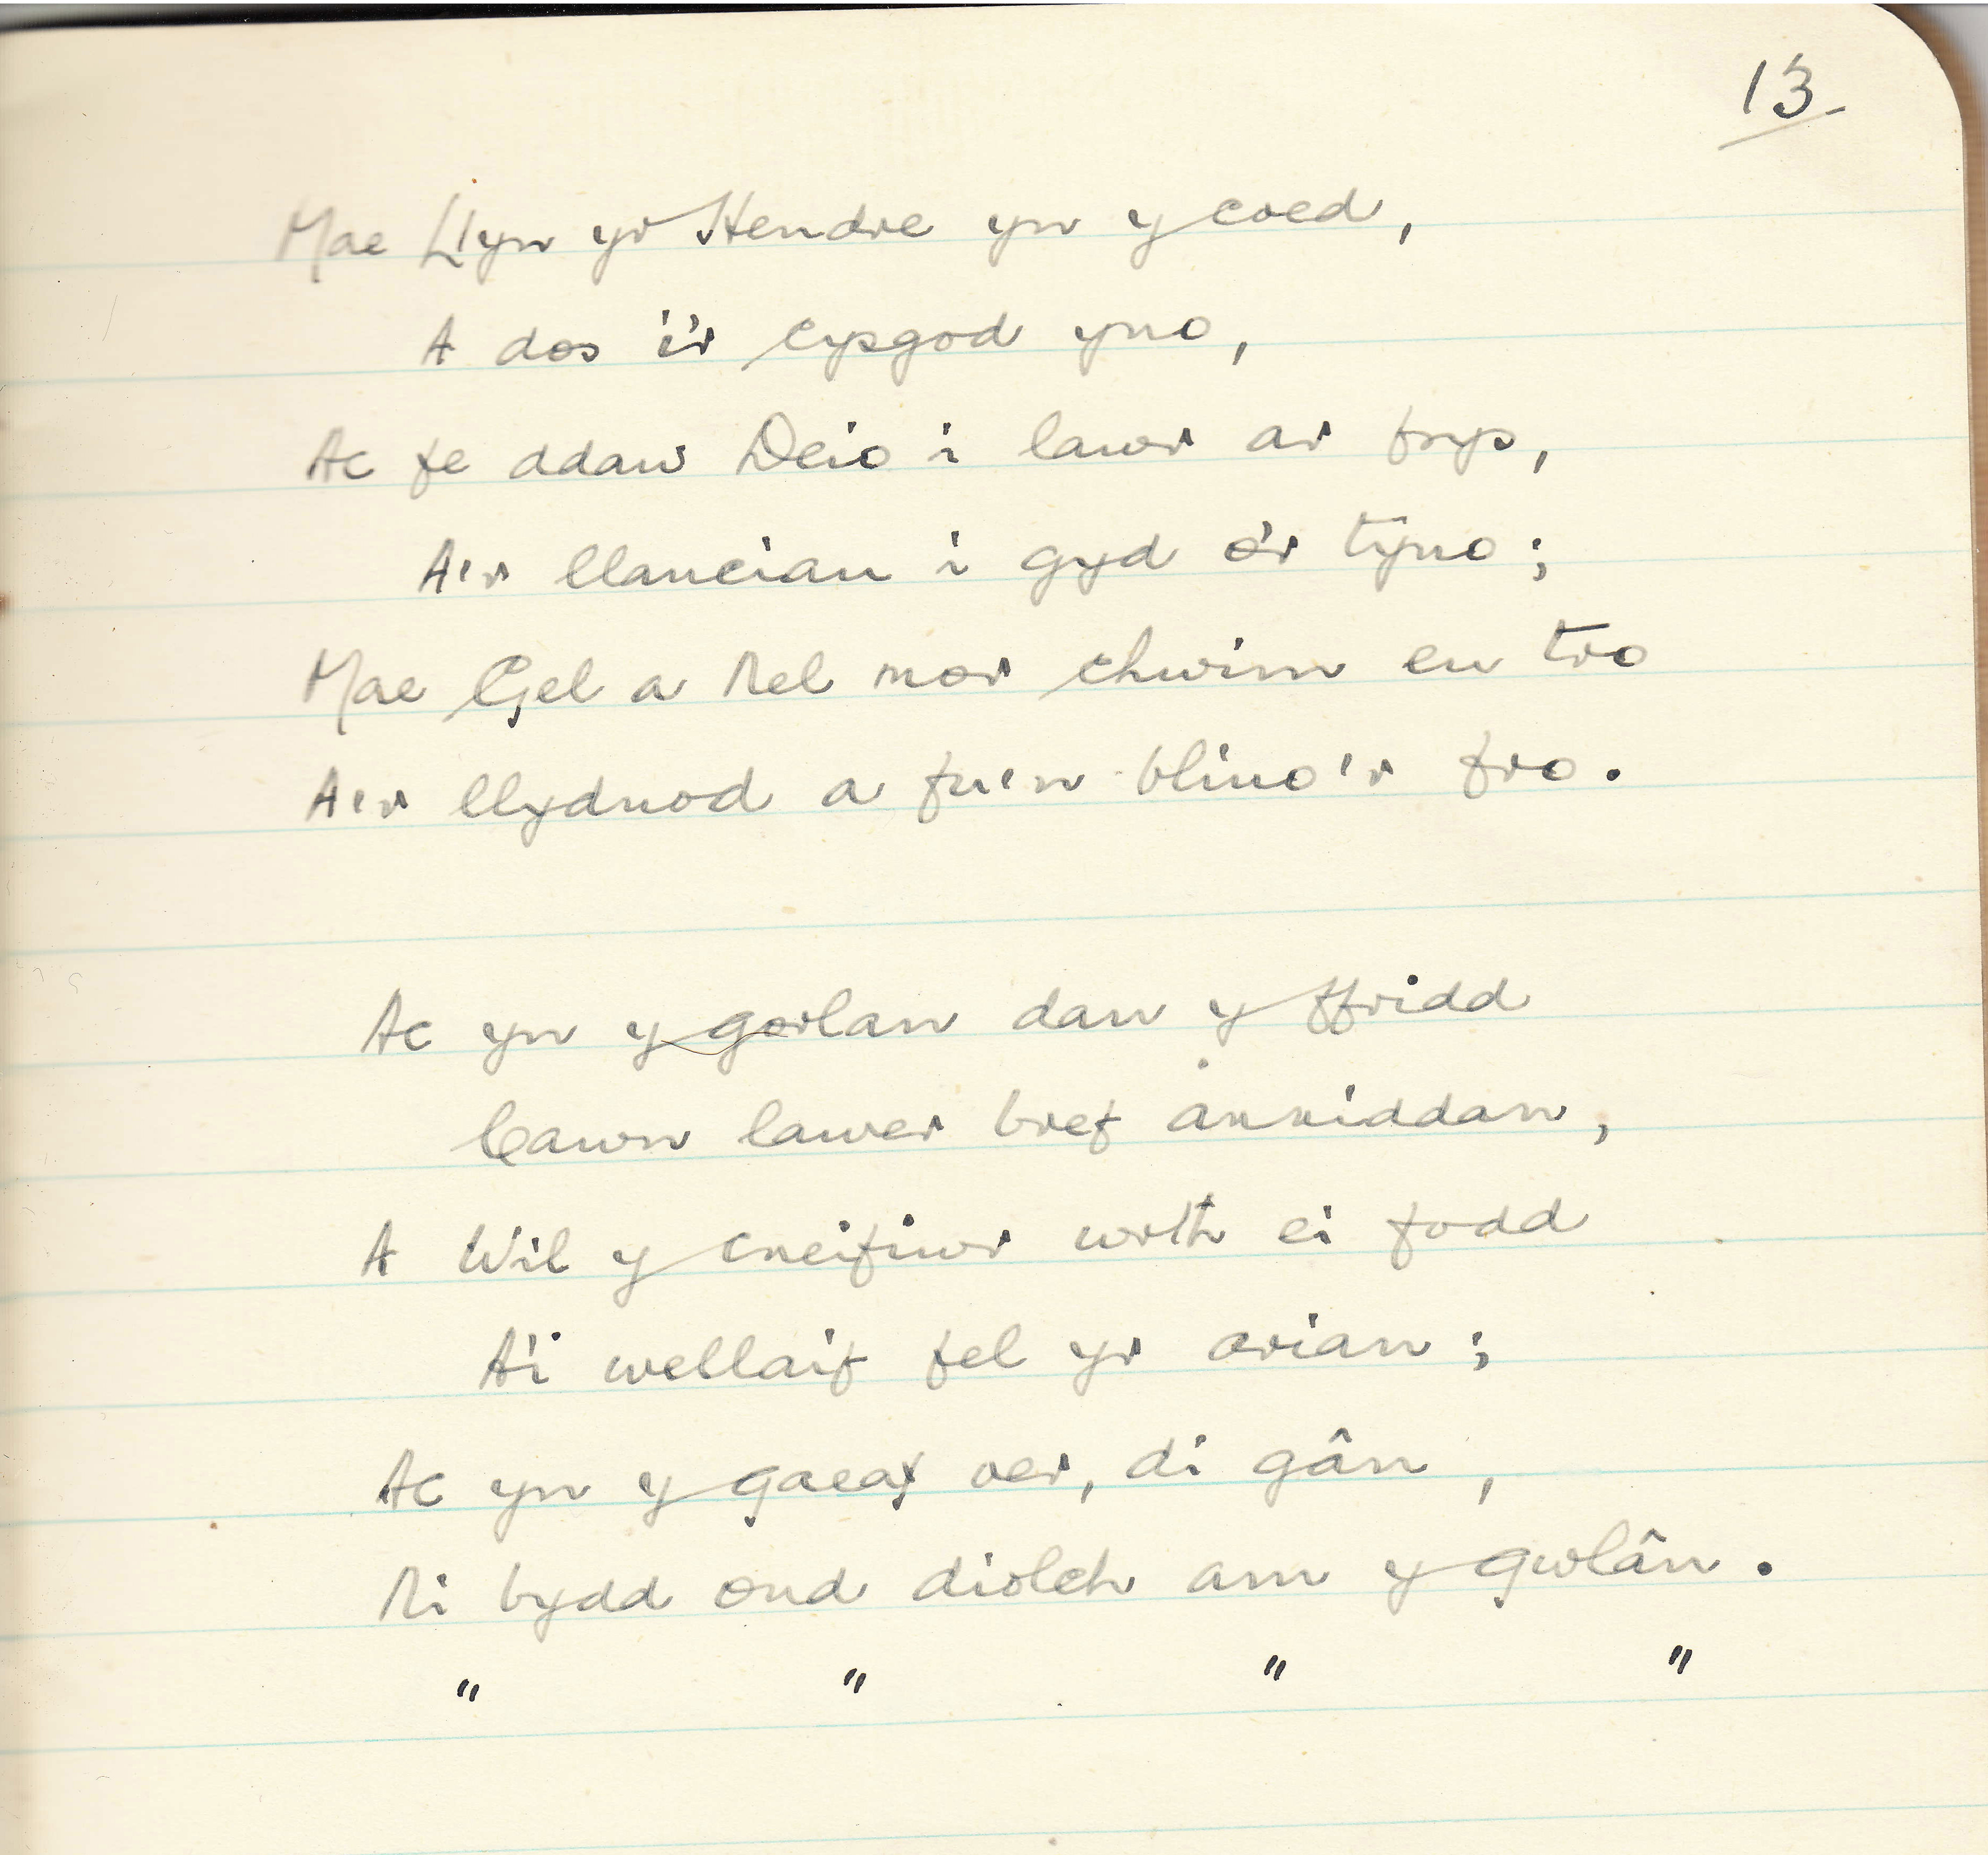 13
Mae Llyn yr Hendre yn y coed,
A dos i'r cysgod yno,
Ac fe ddaw Deio i lawr ar frys,
A'r llanciau i gyd o'r tyno;
Mae Gel a Nel mor chwim eu tro
A'r llydnod a fu'n blino'r fro.
Ac yn y gorlan dan y ffridd
Cawn lawer bref anniddan,
A Wil y cneifiwr wrth ei fodd
A'i wellaif fel yr arian;
Ac yn y gaeaf oer, di gân,
Ni bydd ond diolch am y gwlân.
" " " "